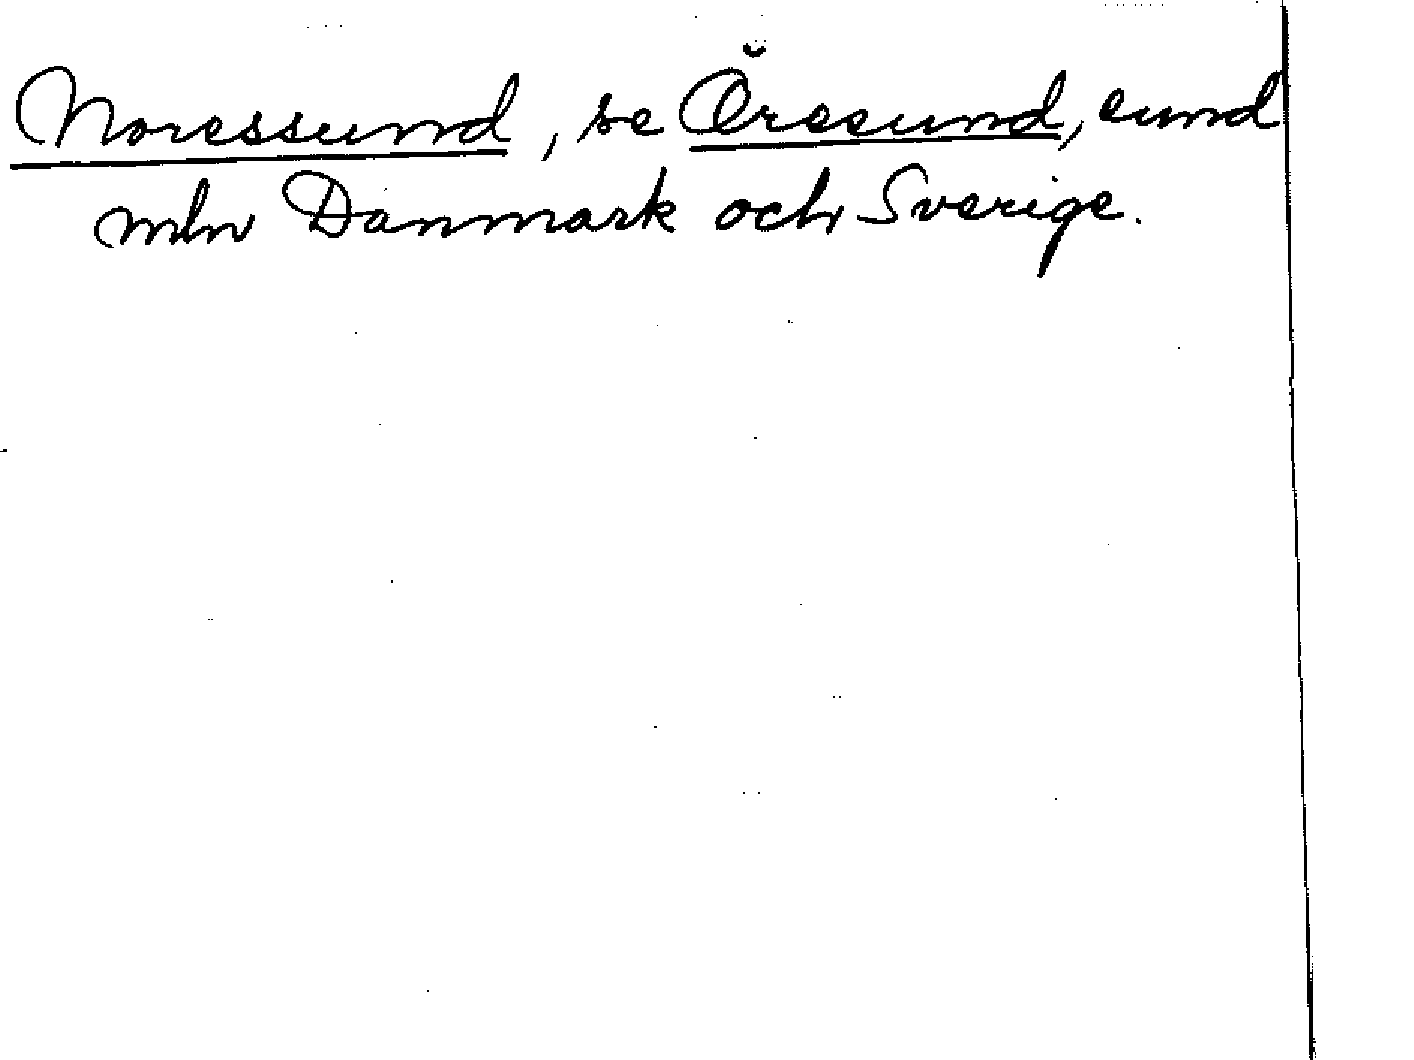 Noressund, se Öresund, sund
mln Danmark och Sverige.